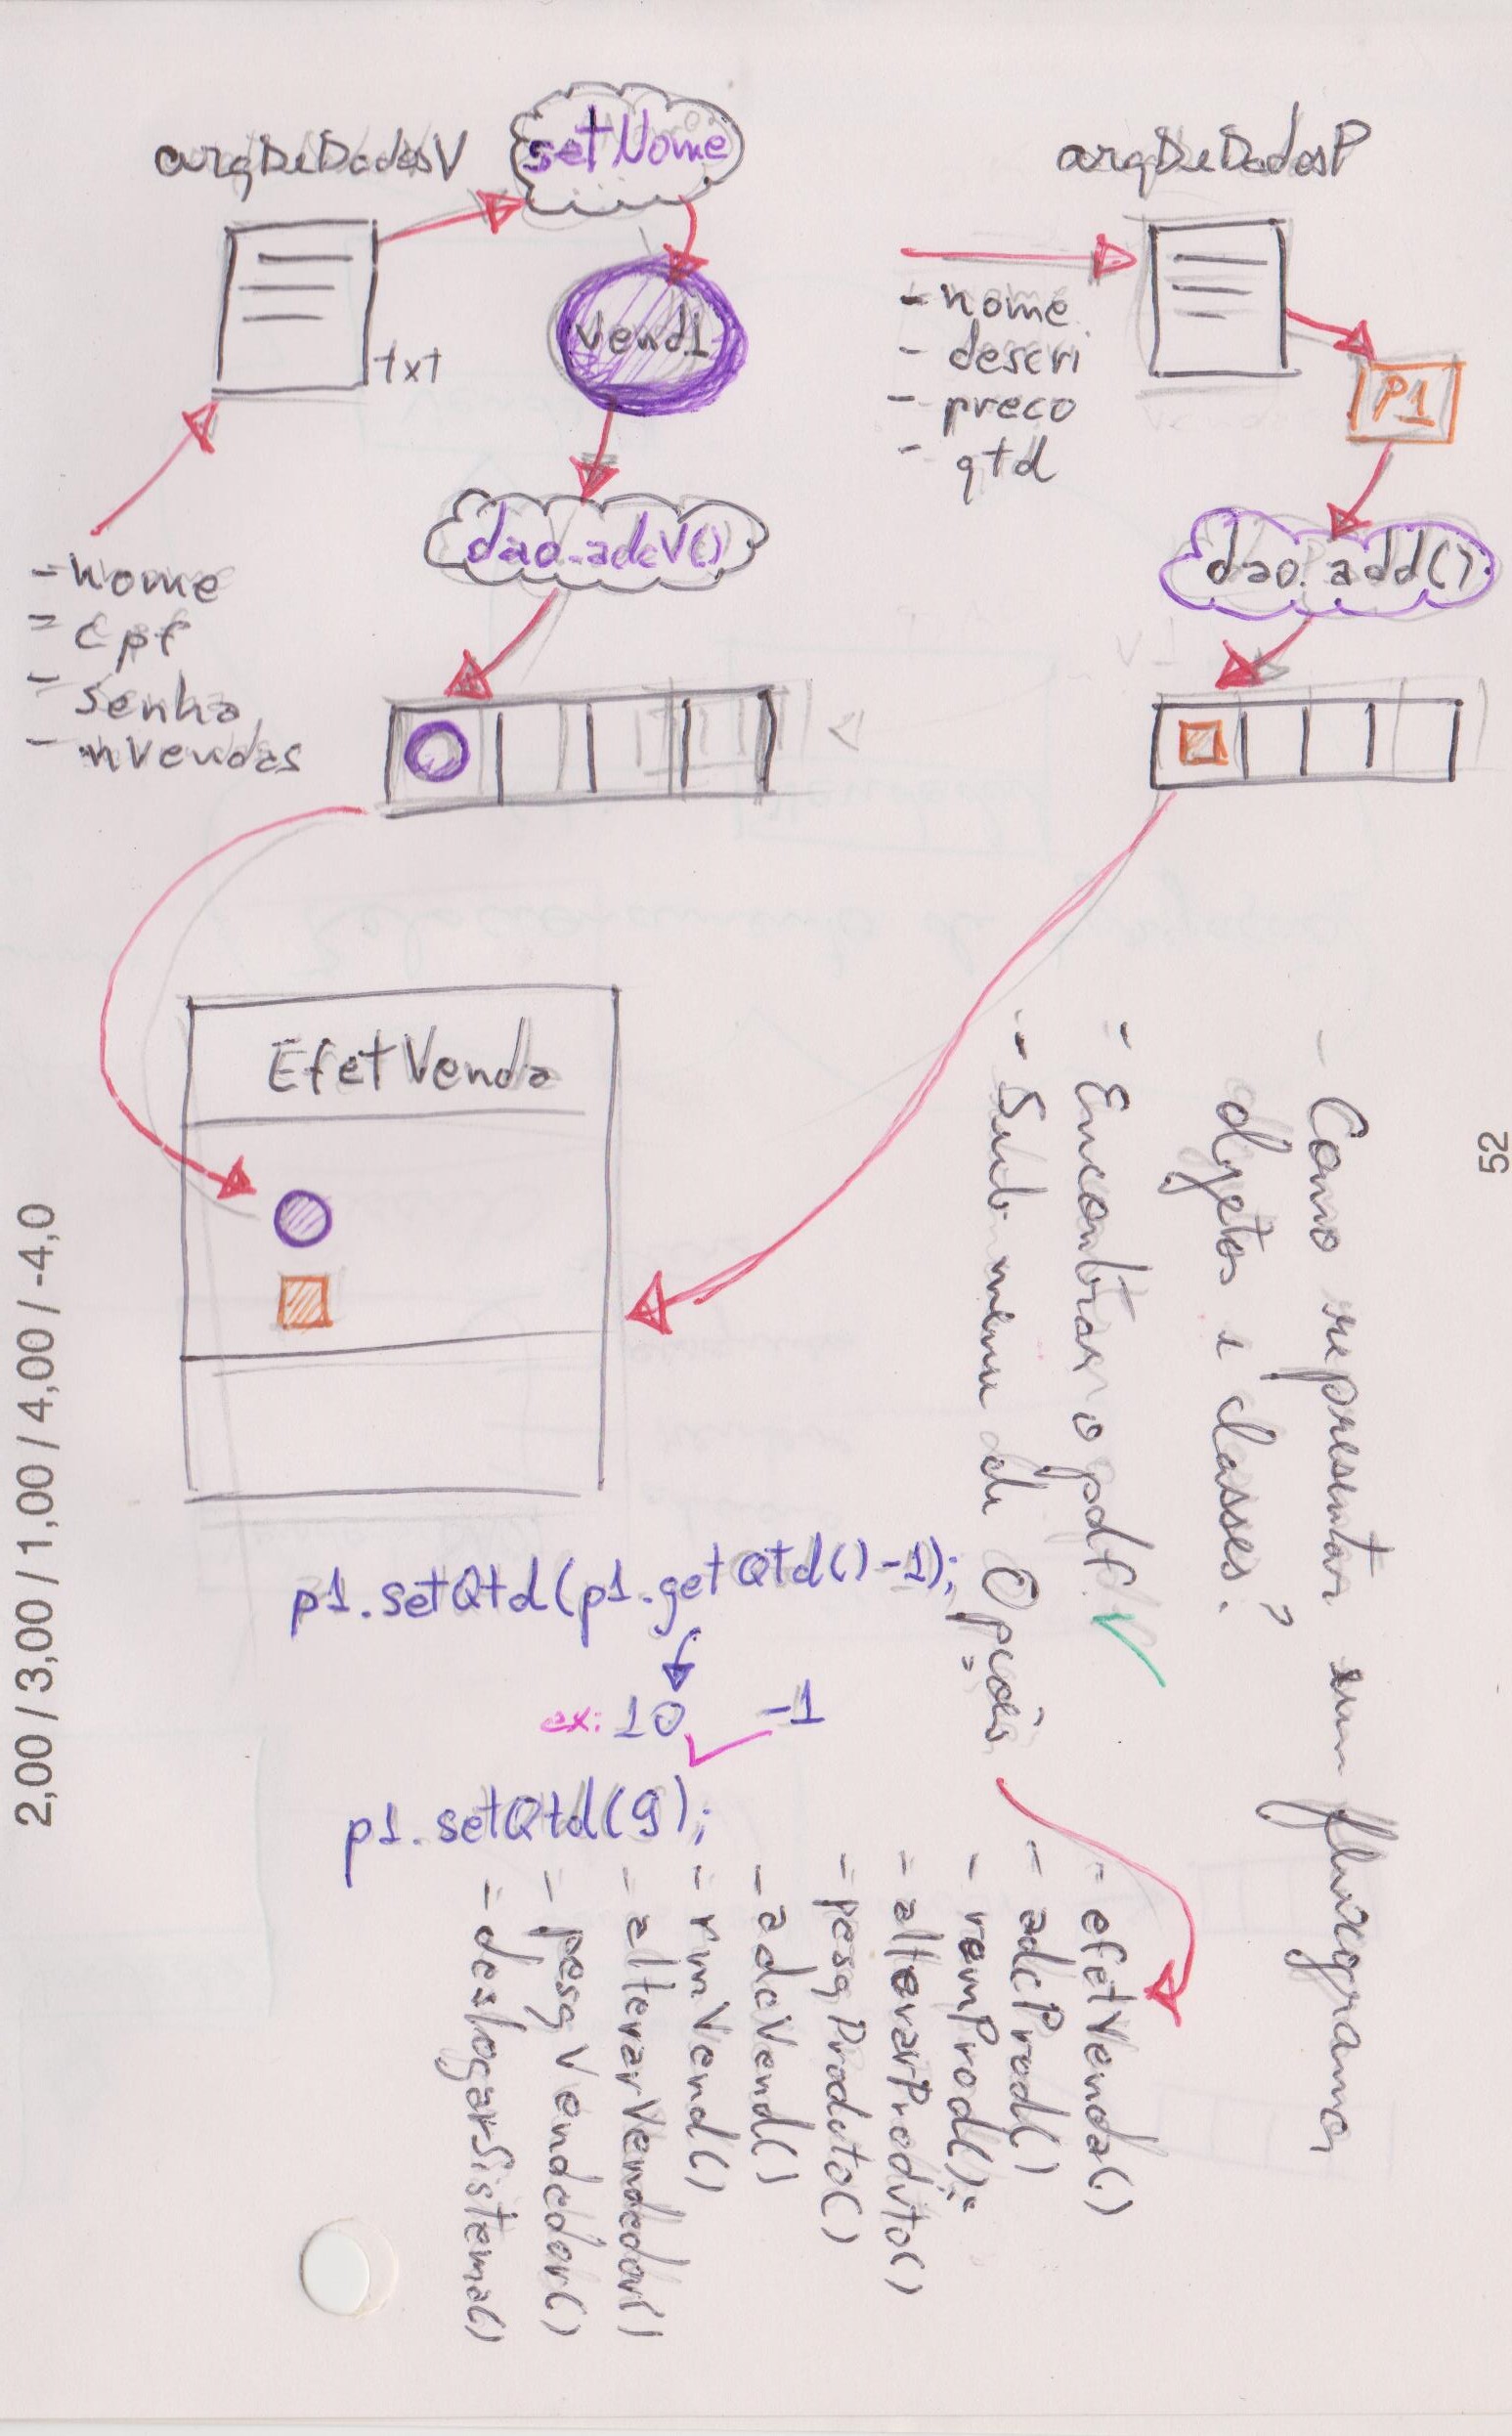 argDeDadosV
setNome
txt
Vend1
- nome
- cpf
- senha
- nVendas
dao.adcV()
argDeDadosP
- nome
- descri
- preco
- qtd
P1
dao.add()
EfetVenda
p1.setQtd(p1.getQtd()-1);
ex: 10 -1
p1.setQtd(9);
- Como representar em fluxograma
objetos e classes?
- Encontrar o pdf.
- Sub menu de Opções
- efetVenda()
- adcProd()
- remProd();
- alterarProduto()
- pesqProduto()
- adcVend()
- rmVend()
- alterarVendedor()
- pesqVendedor()
- deslogarSistema()
52
2,00 / 3,00 / 1,00 / 4,00 / -4,0